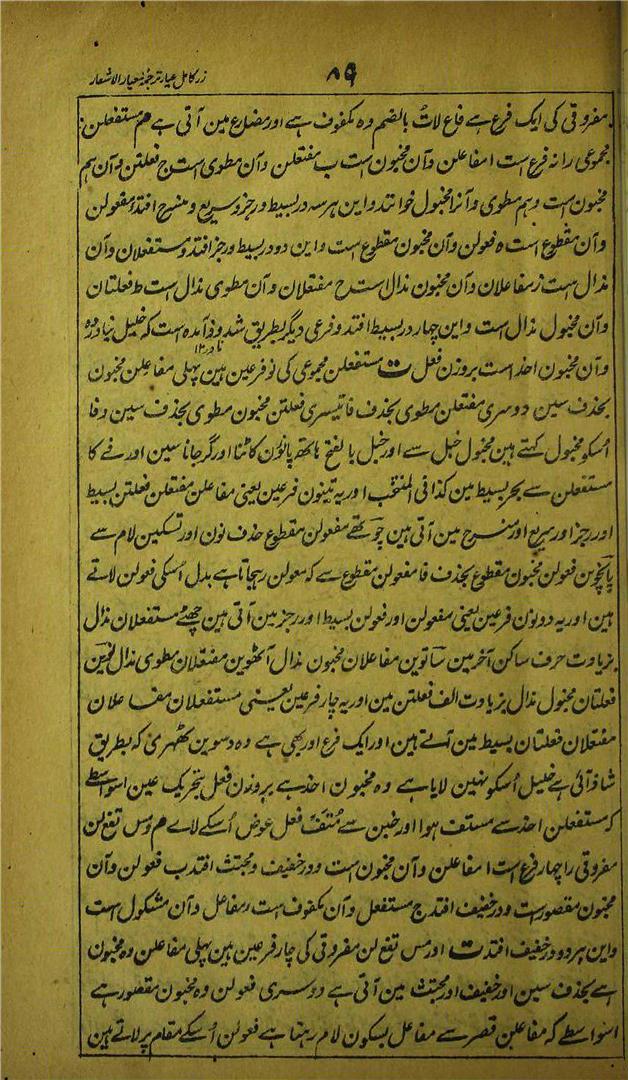 ۸۹
زر کامل عیار ترجمۂ معیار الاشعار
مفروقی کی ایک فرع ہے فاع لاتُ بالضم وہ مکفوف ہے اور مضارع مین آتی ہے هم مستفعلن
مجموعی را نہ فرع است ا مفاعلن وآن مخبون است ب مفتعلن وآن مطوی است ج فعلتن وآن ہم
مخبون است وہم مطوی وآنرا مخبول خوانند واین ہر سہ در بسیط ورجز وسریع ومنسرح افتد ء مفعولن
وآن مقطوع است ه فعولن وآن مخبون مقطوع است واین دو در بسیط ورجز افتد و مستفعلان وآن
مذال است ز مفاعلان وآن مخبون مذال است ح مفتعلان وآن مطوی مذال است ط فعلتان
وآن مخبول مذال است واین چہار در بسیط افتد وفرعی دیگر بطریق شذوذ آمدہ است کہ خلیل نیاوردہ
نادر ۱۲
وآن مخبون احذ است بر وزن فعل ت مستفعلن مجموعی کی نو فرعین ہین پہلی مفاعلن مخبون
بحذف سین دوسری مفتعلن مطوی بحذف فا تیسری فعلتن مخبون مطوی بحذف سین و فا
اُسکو مخبول کہتے ہین مخبول خبل سے اور خبل بالفتح ہاتھ پانؤن کاٹنا اور گر جانا سین اور فے کا
مستفعلن سے بحر بسیط مین کذا فی المنتخب اور یہ تینون فرعین یعنی مفاعلن مفتعلن فعلتن بسیط
اور رجز اور سریع اور منسرح مین آتی ہین چوتھے مفعولن مقطوع حذف نون اور تسکین لام سے
پانچوین فعولن مخبون مقطوع بحذف فا مفعولن مقطوع سے کہ معولن رہجاتا ہے بدل اُسکی فعولن لاتے
ہین اور یہ دونون فرعین یعنی مفعولن اور فعولن بسیط اور رجز مین آتی ہین چھٹے مستفعلان مذال
بزیادت حرف ساکن آخر مین ساتوین مفاعلان مخبون مذال آٹھوین مفتعلان مطوی مذال نوین
فعلتان مخبول مذال بزیادت الف فعلتن مین اور یہ چار فرعین یعنی مستفعلان مفاعلان
مفتعلان فعلتان بسیط مین آتے ہین اور ایک فرع اور بھی ہے وہ دسوین ٹھہری کہ بطریق
شاذ آئی ہے خلیل اُسکو نہین لایا ہے وہ مخبون احذ ہے بر وزن فعل بتحریک عین اسواسطے
کہ مستفعلن احذ سے مستف ہوا اور خبن سے مُتَفْ فعل عوض اُسکے لائے هم ومس تفع لن
مفروقی را چہار فرع است ا مفاعلن وآن مخبون است ودر خفیف ومجتث افتد ب فعولن وآن
مخبون مقصور است ودر خفیف افتد ج مستفعل وآن مکفوف است ء مفاعل وآن مشکول است
واین ہر دو در خفیف افتد ت اور مس تفع لن مفروقی کی چار فرعین ہین پہلی مفاعلن وہ مخبون
ہے بحذف سین اور خفیف اور مجتث مین آتی ہے دوسری فعولن وہ مخبون مقصور ہے
اسواسطے کہ مفاعلن قصر سے مفاعل بسکون لام رہتا ہے فعولن اُسکے مقام پر لاتے ہین